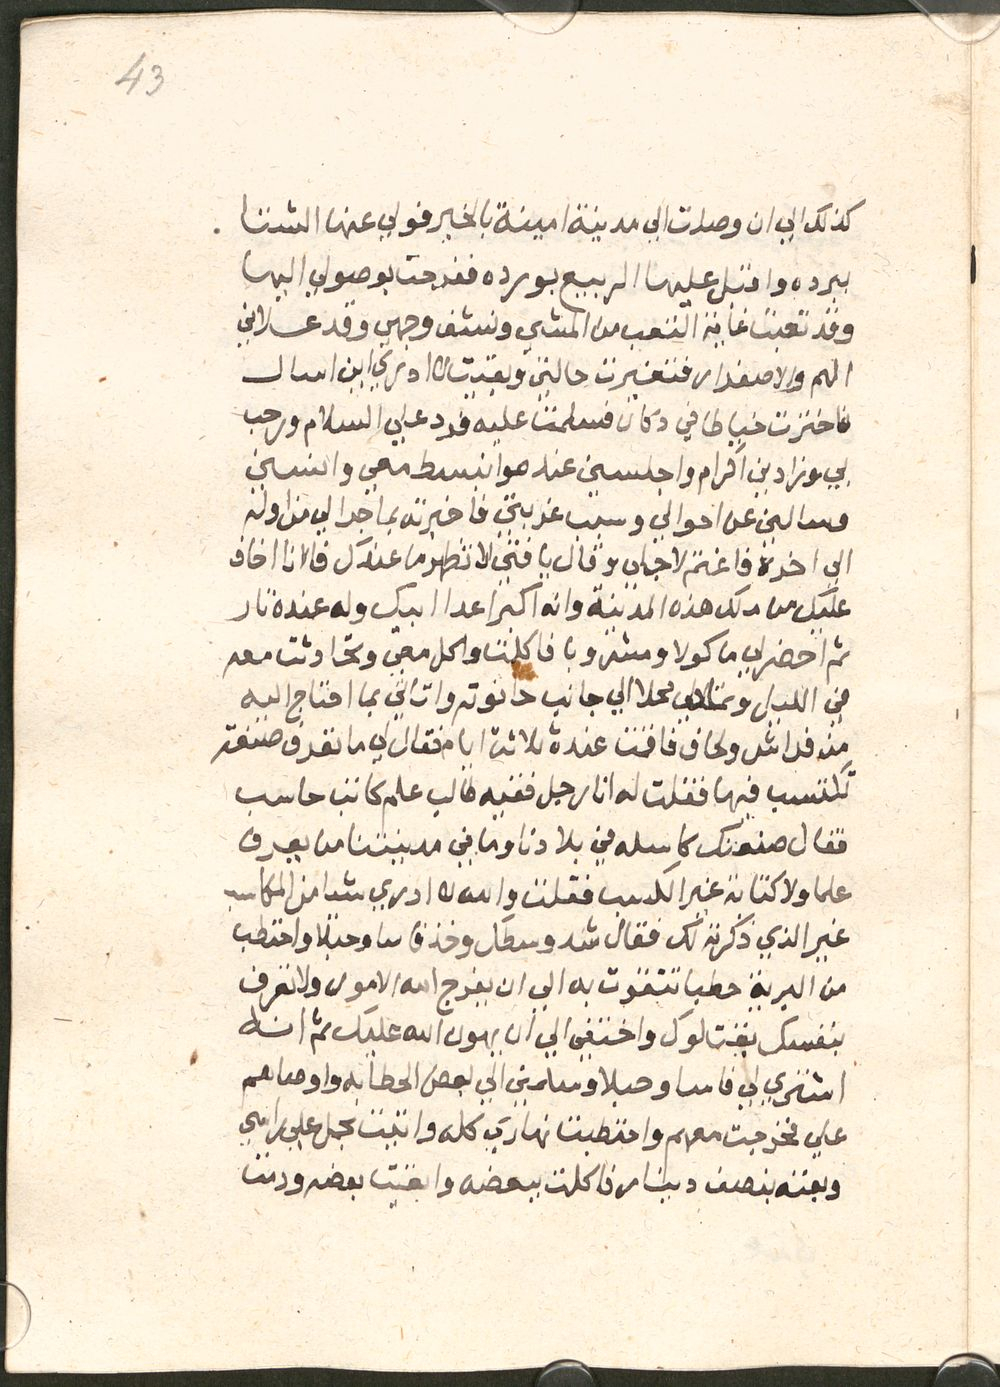 43
كذلك الي ان وصلت الي مدينة امينة بالخير فولي عنها الشتا
ببرده واقبل عليها الربيع بورده ففرحت بوصولي اليها
وقد تعبت غاية التعب من المشي ونشف وجهي وقد علاني
الهم والاصفرار فتغيرت حالتي وبقيت لا ادري اين اسال
فاخترت خياطا في دكان فسلمت عليه فرد علي السلام ورحب
بي وزادني اكرام واجلسني عنده وانبسط معي وانسني
وسالني عن احوالي وسبب غربتي فاخبرته بما جرا لي من اوله
الي اخره فاغتم لاجلي وقال يا فتي لا تظهر ما عندك فالانا اخاف
عليك من ملك هذه المدينة وانه اكبر اعدا ابيك وله عنده تار
ثم احضر لي ماكولا ومشروبا فاكلت واكل معي وتحادثت معه
في الليل محلا الي جانب حانوته واتاني بما احتاج اليه
من فراش ولحاف فاقمت عنده ثلاثة ايام فقال لي ما تعرف صنعة
تكتسب فيها فقلت له انا رجل فقيه طالب علم كاتب حاسب
فقال صنعتك كاسده في بلادنا وما في مدينتنا من يعرف
علما ولا كتابة غير الكسب فقلت والله لا ادري شيا من المكاسب
غير الذي ذكرته لك فقال شد وسطك وخذ فاسا وحبلا واحتطب
من البرية حطبا تتقوت به الي ان يفرج الله الامور ولا تعرف
بنفسك يقتلوك واختفي الي ان يهون الله عليك ثم انه
اشتري لي فاسا وحبلا وسلمني الي بعض الحطابه واوصاهم
علي فخرجت معهم واحتطبت نهاري كله واتيت بحمل علي راسي
وبعته بنصف دينار فاكلت ببعضه وابقيت بعضه ودمت